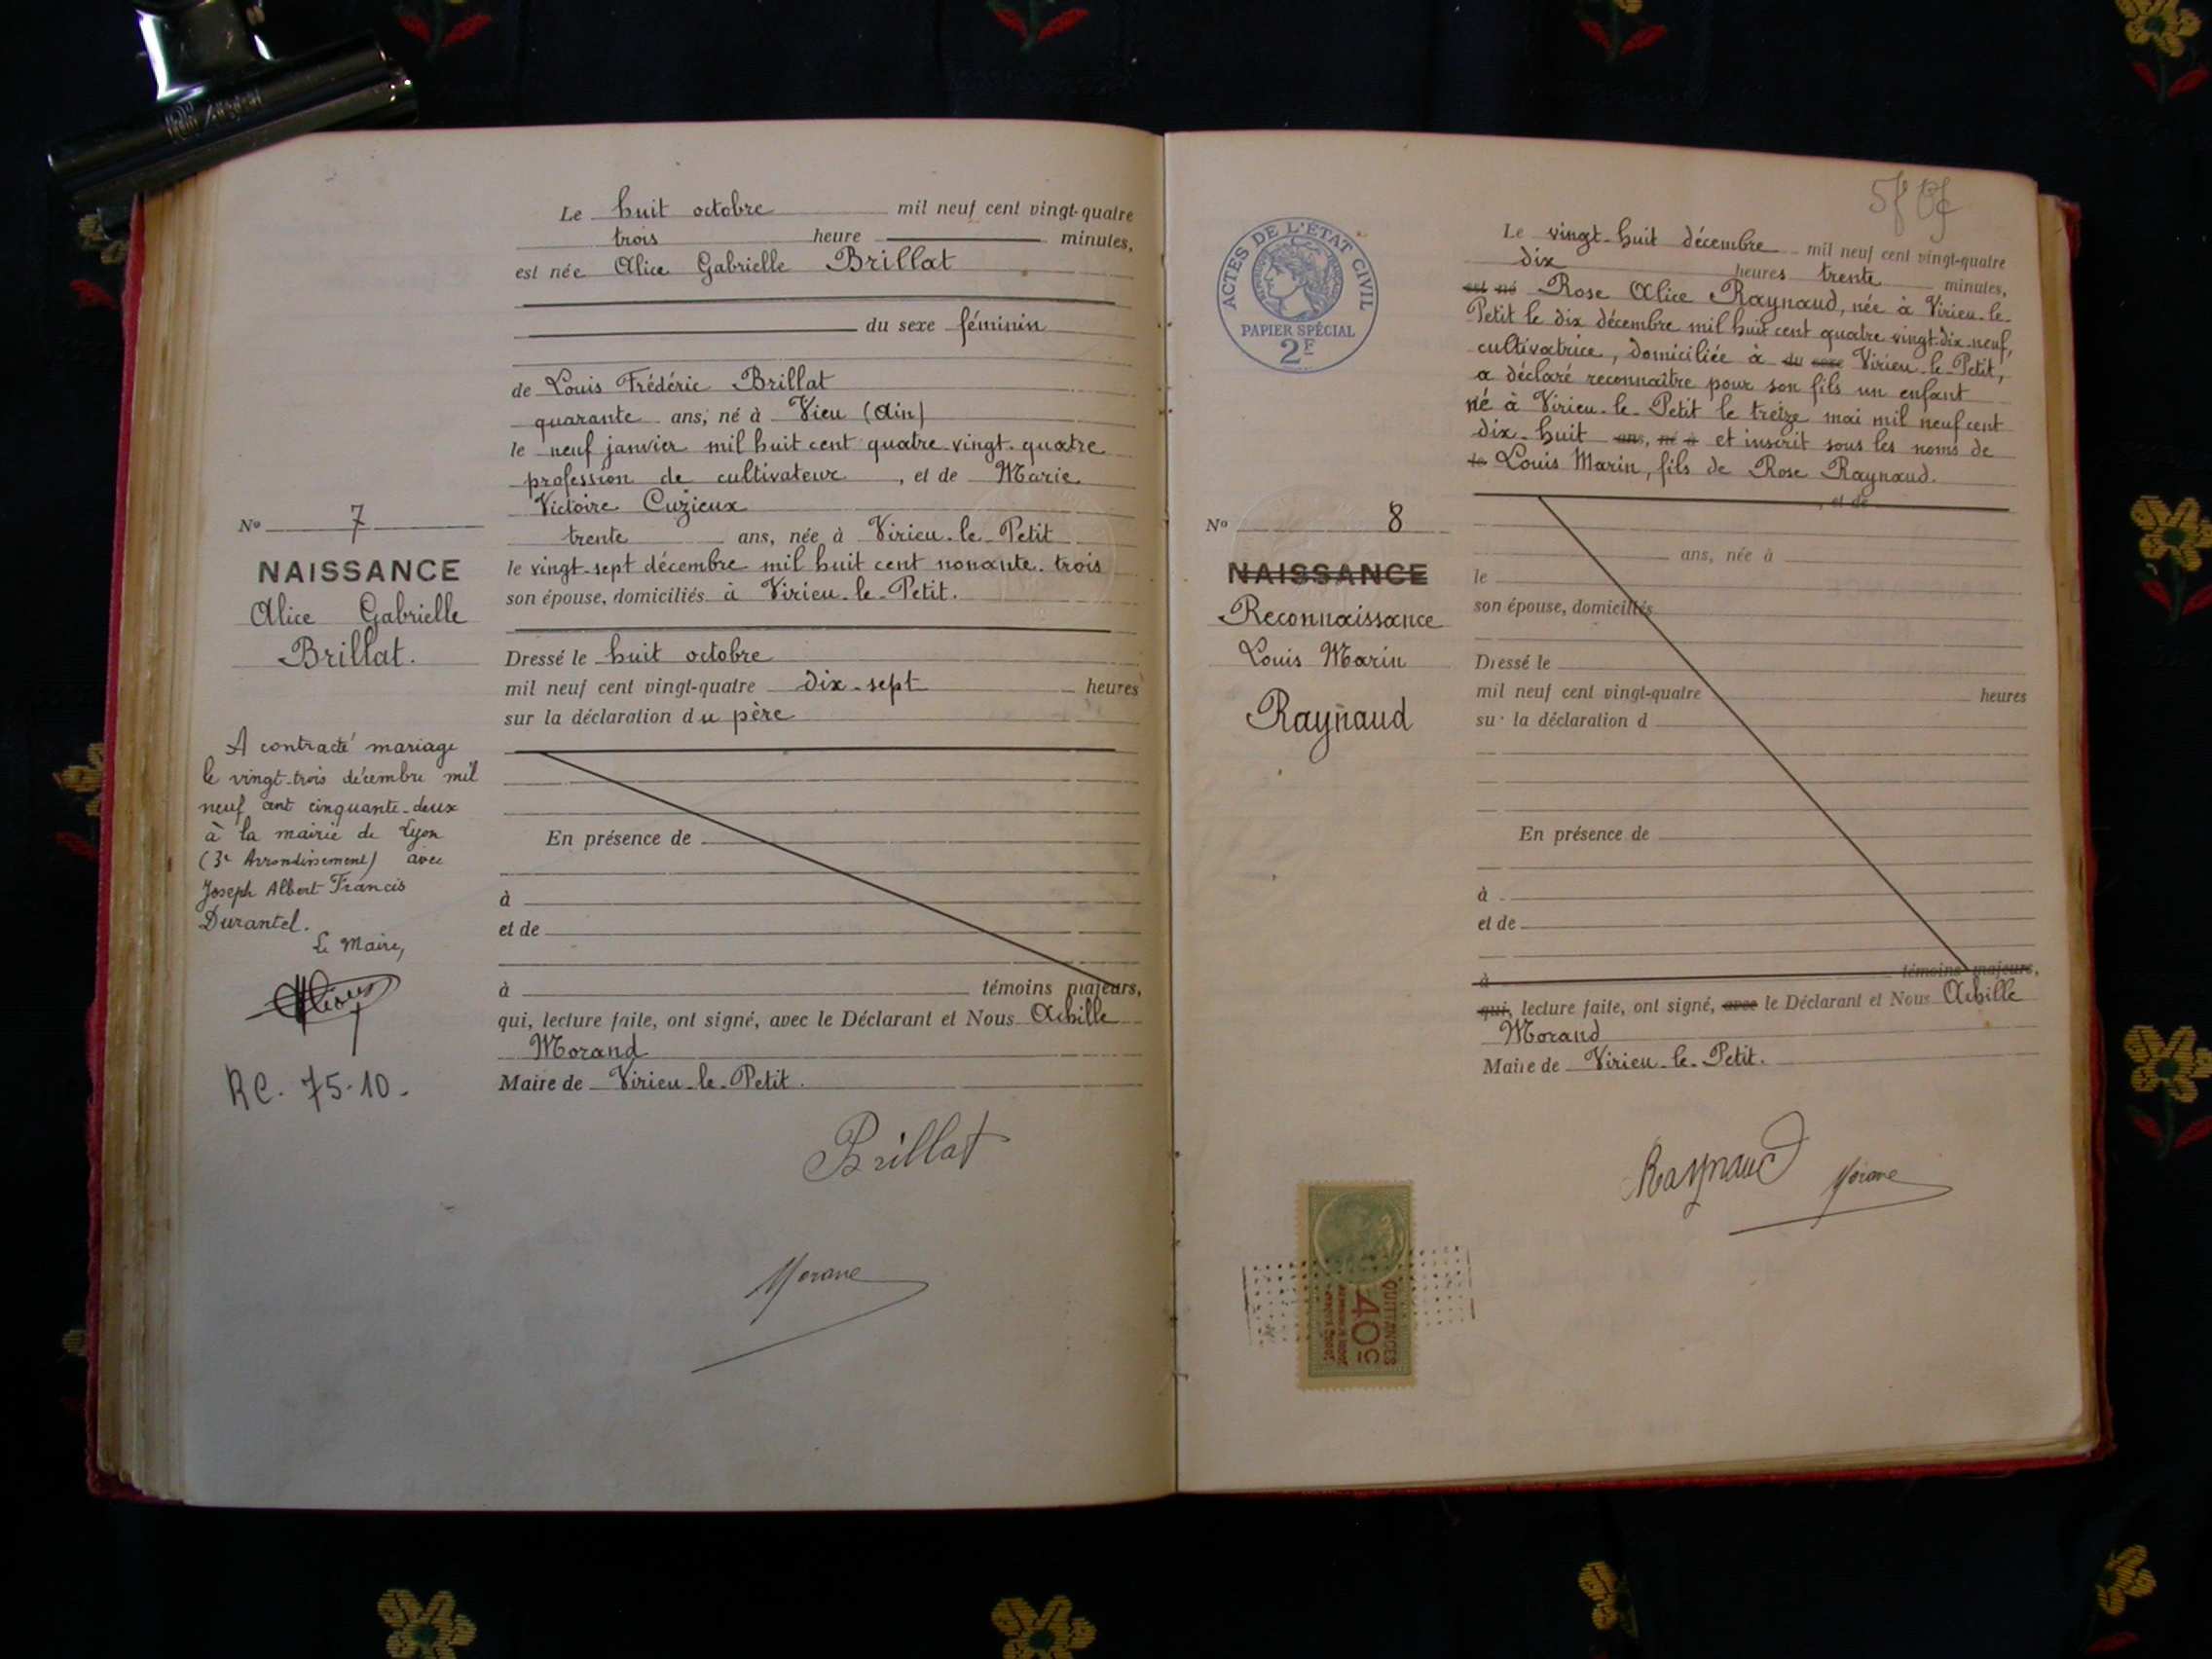 Le huit octobre mil neuf cent vingt-quatre
trois heure minutes,
est née Alice Gabrielle Brillat
du sexe féminin
de Louis Frédéric Brillat
quarante ans, né à Vieu (Ain)
le neuf janvier mil huit cent quatre-vingt-quatre
profession de cultivateur, et de Marie
Victoire Cuzieux
trente ans, née à Virieu-le-Petit
le vingt-sept décembre mil huit cent nonante-trois
son épouse, domiciliés à Virieu-le-Petit.
Nº 7
NAISSANCE
Alice Gabrielle
Brillat.
Dressé le huit octobre
mil neuf cent vingt-quatre dix-sept heures
sur la déclaration du père
A contracté mariage
le vingt-trois décembre mil
neuf cent cinquante-deux
à la mairie de Lyon
(3e Arrondissement) avec
Joseph Albert Francis
Durantel.
Le Maire,
RC. 75-10.
En présence de
à
et de
à témoins majeurs,
qui, lecture faite, ont signé, avec le Déclarant et Nous Achille
Morand
Maire de Virieu-le-Petit.
Brillat
Morand
ACTES DE L'ÉTAT CIVIL
PAPIER SPÉCIAL
2F
Le vingt-huit décembre mil neuf cent vingt-quatre
dix heures trente minutes,
est né Rose Alice Raynaud, née à Virieu-le-
Petit le dix décembre mil huit cent quatre vingt-dix-neuf,
cultivatrice, domiciliée à du sexe Virieu-le-Petit,
a déclaré reconnaître pour son fils un enfant
né à Virieu-le-Petit le treize mai mil neuf cent
dix-huit ans, né à et inscrit sous les noms de
de Louis Marin, fils de Rose Raynaud.
, et de
Nº 8
NAISSANCE
Reconnaissance
Louis Marin
Raynaud
ans, née à
le
son épouse, domiciliés
Dressé le
mil neuf cent vingt-quatre heures
sur la déclaration d
En présence de
à
et de
à témoins majeurs,
qui, lecture faite, ont signé, avec le Déclarant et Nous Achille
Morand
Maire de Virieu-le-Petit.
Raynaud
Morand
QUITTANCES
40c